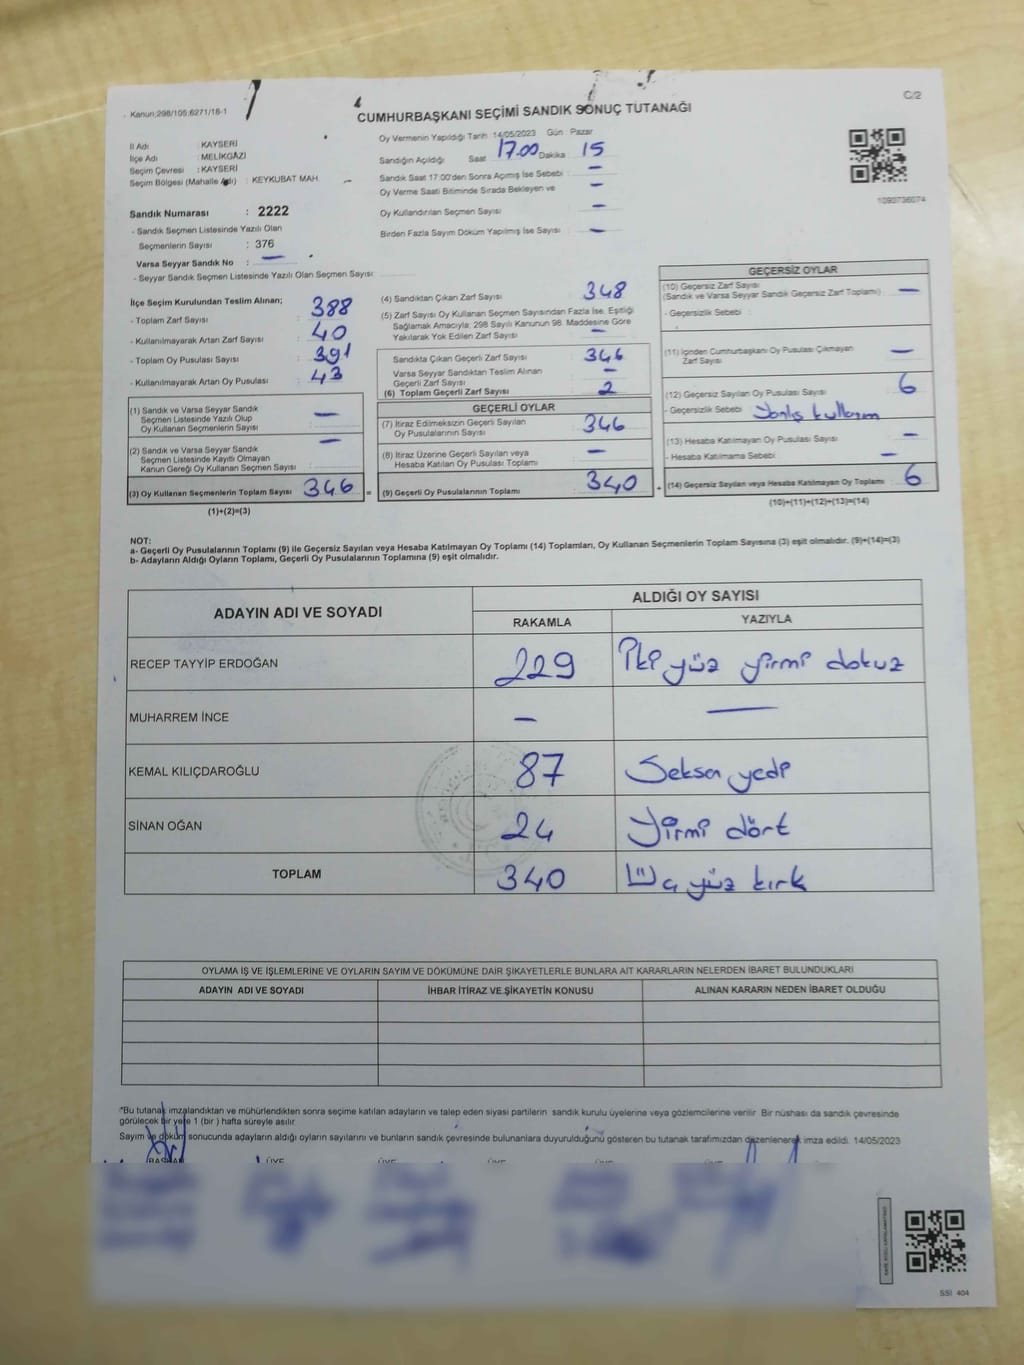 Kanun:298/105;6271/16-1
C/2
CUMHURBAŞKANI SEÇİMİ SANDIK SONUÇ TUTANAĞI
İl Adı : KAYSERİ
İlçe Adı : MELİKGAZİ
Seçim Çevresi : KAYSERİ
Seçim Bölgesi (Mahalle Adı) : KEYKUBAT MAH.
Sandık Numarası : 2222
- Sandık Seçmen Listesinde Yazılı Olan
Seçmenlerin Sayısı : 376
Varsa Seyyar Sandık No : —
- Seyyar Sandık Seçmen Listesinde Yazılı Olan Seçmen Sayısı:
Oy Vermenin Yapıldığı Tarih 14/05/2023 Gün Pazar
Sandığın Açıldığı Saat 17.00 Dakika 15
Sandık Saat 17:00'den Sonra Açılmış İse Sebebi : —
Oy Verme Saati Bitiminde Sırada Bekleyen ve —
Oy Kullandırılan Seçmen Sayısı —
Birden Fazla Sayım Döküm Yapılmış İse Sayısı : —
1093736074
İlçe Seçim Kurulundan Teslim Alınan;
- Toplam Zarf Sayısı : 388
- Kullanılmayarak Artan Zarf Sayısı : 40
- Toplam Oy Pusulası Sayısı : 391
- Kullanılmayarak Artan Oy Pusulası : 43
(1) Sandık ve Varsa Seyyar Sandık
Seçmen Listesinde Yazılı Olup
Oy Kullanan Seçmenlerin Sayısı : —
(2) Sandık ve Varsa Seyyar Sandık
Seçmen Listesinde Kayıtlı Olmayan
Kanun Gereği Oy Kullanan Seçmen Sayısı : —
(3) Oy Kullanan Seçmenlerin Toplam Sayısı : 346 =
(1)+(2)=(3)
(4) Sandıktan Çıkan Zarf Sayısı : 348
(5) Zarf Sayısı Oy Kullanan Seçmen Sayısından Fazla İse, Eşitliği
Sağlamak Amacıyla; 298 Sayılı Kanunun 98. Maddesine Göre
Yakılarak Yok Edilen Zarf Sayısı : —
Sandıkta Çıkan Geçerli Zarf Sayısı : 346
Varsa Seyyar Sandıktan Teslim Alınan
Geçerli Zarf Sayısı : —
(6) Toplam Geçerli Zarf Sayısı : 2
GEÇERLİ OYLAR
(7) İtiraz Edilmeksizin Geçerli Sayılan
Oy Pusulalarının Sayısı : 346
(8) İtiraz Üzerine Geçerli Sayılan veya
Hesaba Katılan Oy Pusulası Toplamı : —
(9) Geçerli Oy Pusulalarının Toplamı : 340 +
GEÇERSİZ OYLAR
(10) Geçersiz Zarf Sayısı
(Sandık ve Varsa Seyyar Sandık Geçersiz Zarf Toplamı) : —
- Geçersizlik Sebebi :
(11) İçinden Cumhurbaşkanı Oy Pusulası Çıkmayan
Zarf Sayısı : —
(12) Geçersiz Sayılan Oy Pusulası Sayısı : 6
- Geçersizlik Sebebi : Yanlış kullanım
(13) Hesaba Katılmayan Oy Pusulası Sayısı : —
- Hesaba Katılmama Sebebi : —
(14) Geçersiz Sayılan veya Hesaba Katılmayan Oy Toplamı : 6
(10)+(11)+(12)+(13)=(14)
NOT:
a- Geçerli Oy Pusulalarının Toplamı (9) ile Geçersiz Sayılan veya Hesaba Katılmayan Oy Toplamı (14) Toplamları, Oy Kullanan Seçmenlerin Toplam Sayısına (3) eşit olmalıdır. (9)+(14)=(3)
b- Adayların Aldığı Oyların Toplamı, Geçerli Oy Pusulalarının Toplamına (9) eşit olmalıdır.
ADAYIN ADI VE SOYADI
ALDIĞI OY SAYISI
RAKAMLA YAZIYLA
RECEP TAYYİP ERDOĞAN 229 İki yüz yirmi dokuz
MUHARREM İNCE — —
KEMAL KILIÇDAROĞLU 87 Seksen yedi
SİNAN OĞAN 24 Yirmi dört
TOPLAM 340 Üç yüz kırk
OYLAMA İŞ VE İŞLEMLERİNE VE OYLARIN SAYIM VE DÖKÜMÜNE DAİR ŞİKAYETLERLE BUNLARA AİT KARARLARIN NELERDEN İBARET BULUNDUKLARI
ADAYIN ADI VE SOYADI İHBAR İTİRAZ VE ŞİKAYETİN KONUSU ALINAN KARARIN NEDEN İBARET OLDUĞU
"Bu tutanak imzalandıktan ve mühürlendikten sonra seçime katılan adayların ve talep eden siyasi partilerin sandık kurulu üyelerine veya gözlemcilerine verilir Bir nüshası da sandık çevresinde
görülecek bir yere 1 (bir ) hafta süreyle asılır
Sayım ve döküm sonucunda adayların aldığı oyların sayılarını ve bunların sandık çevresinde bulunanlara duyurulduğunu gösteren bu tutanak tarafımızdan düzenlenerek imza edildi. 14/05/2023
BAŞKAN ÜYE ÜYE ÜYE ÜYE ÜYE
SSI 404